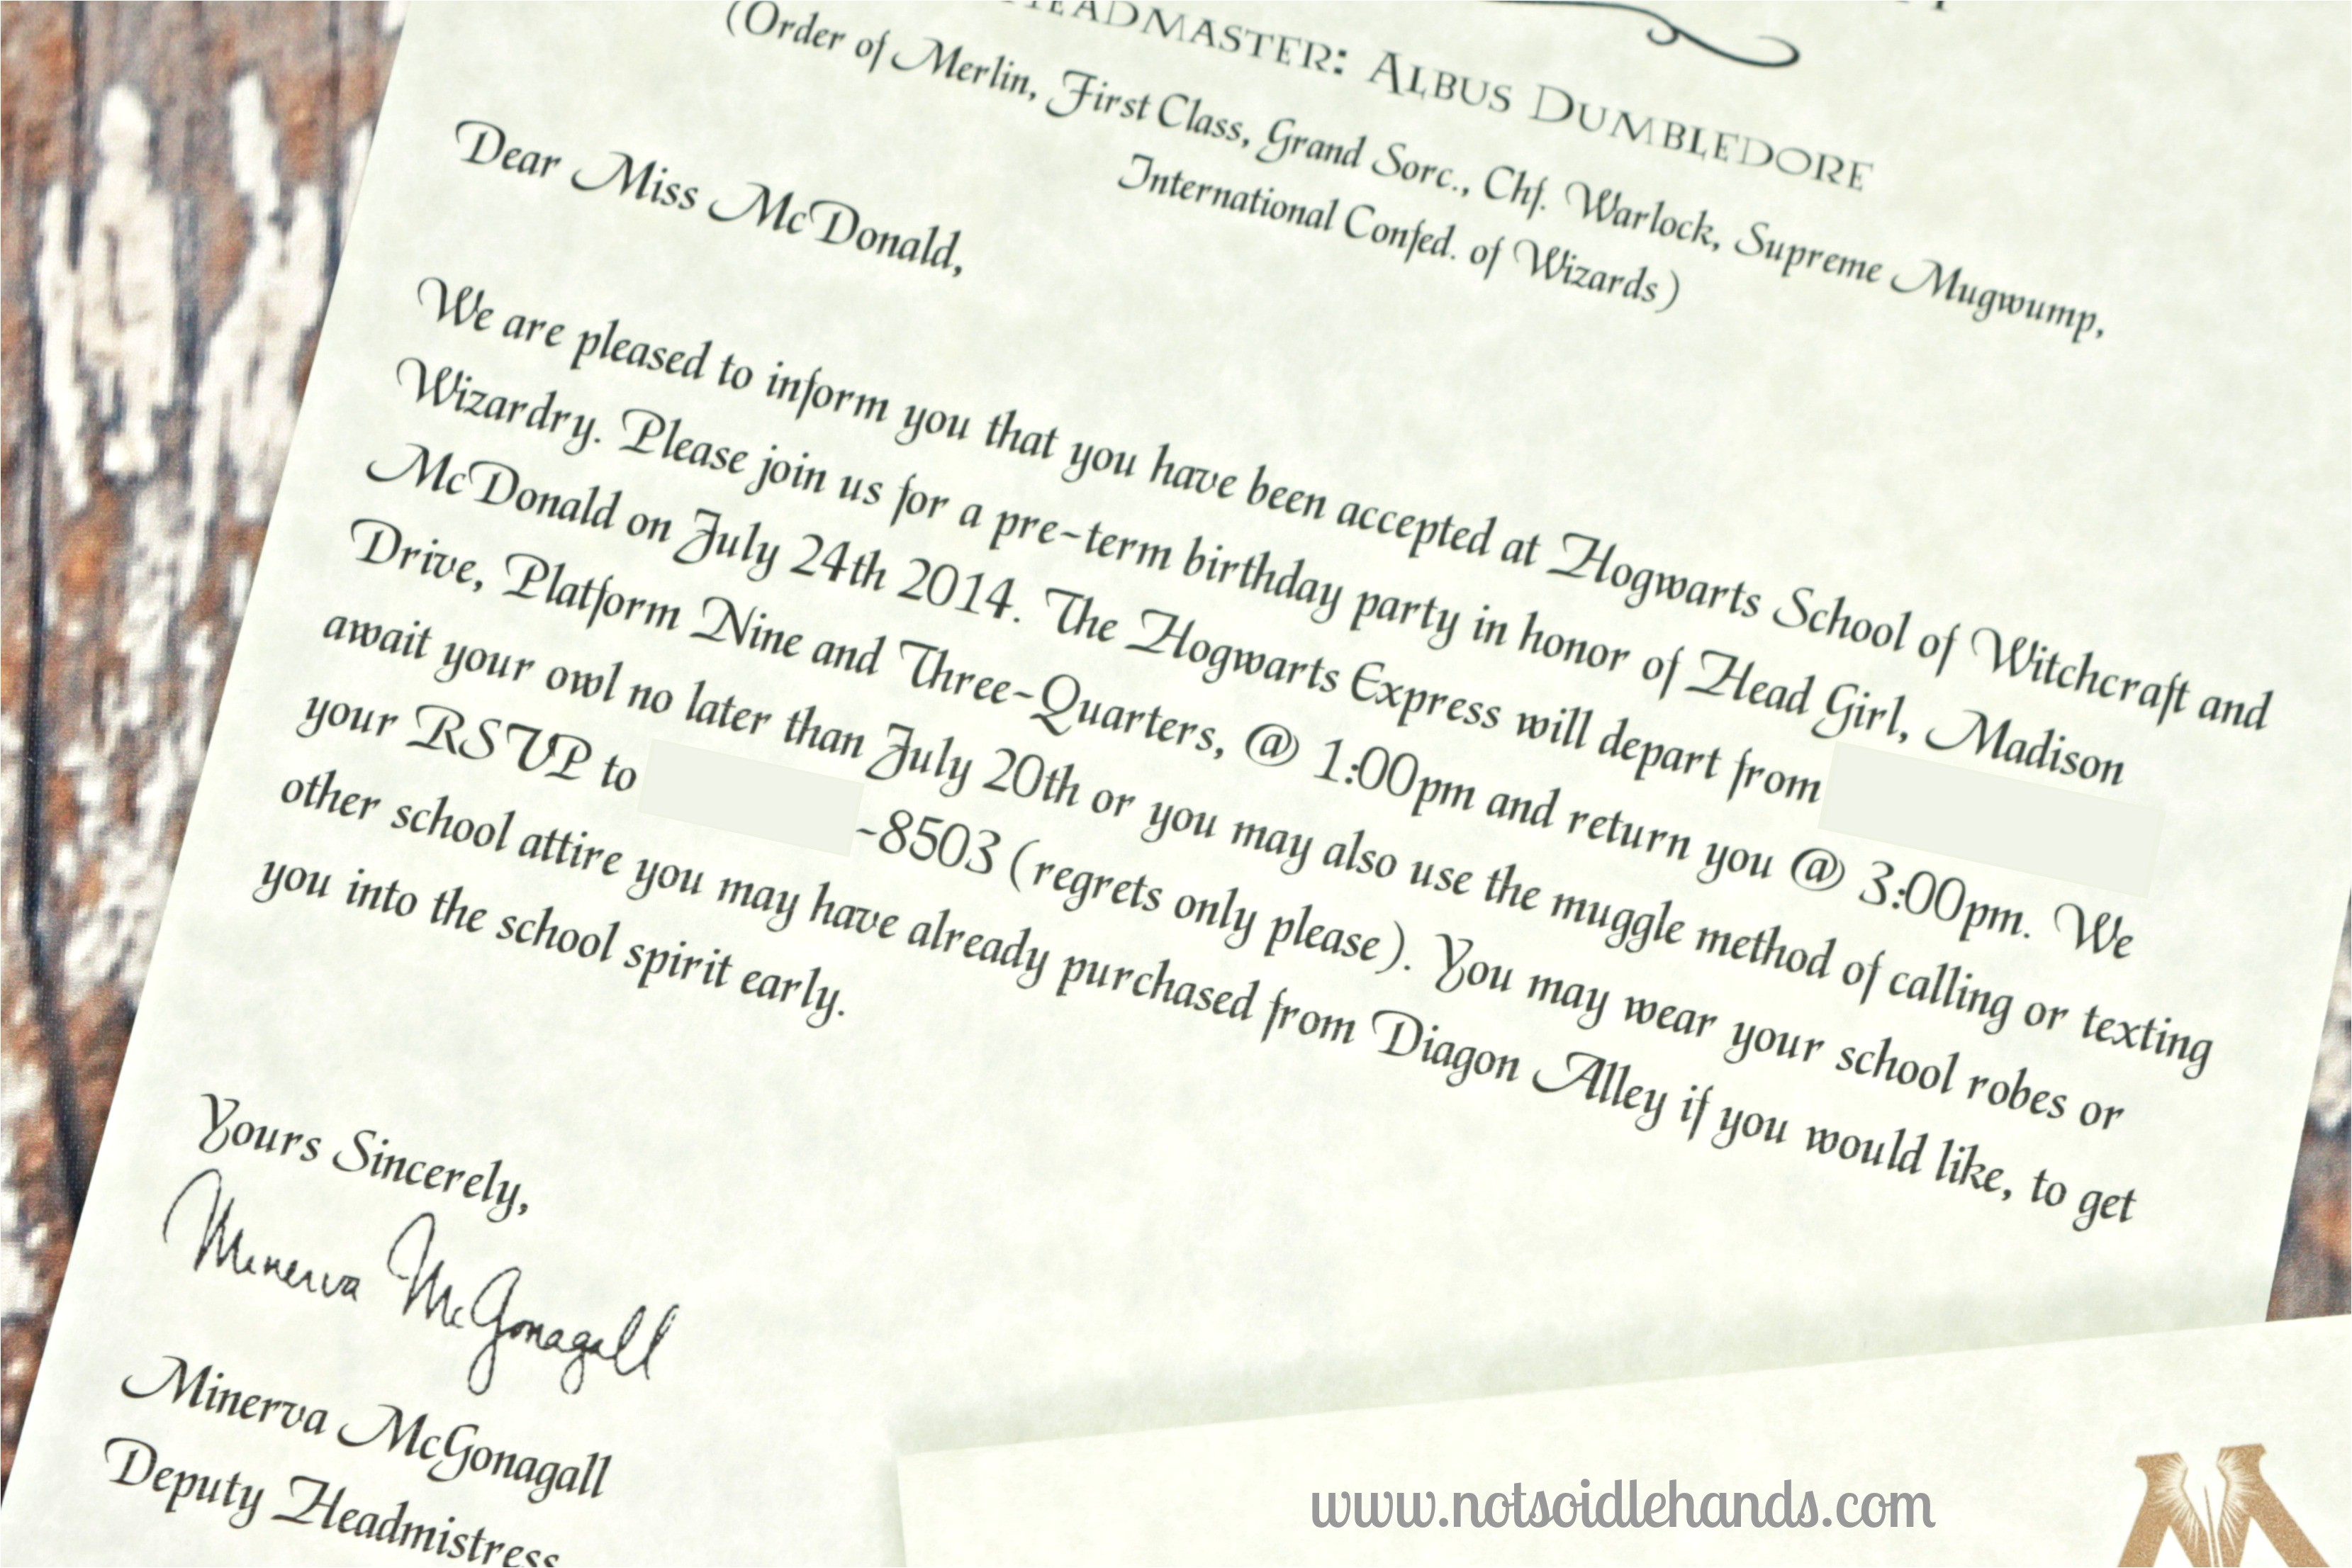 HEADMASTER: ALBUS DUMBLEDORE
(Order of Merlin, First Class, Grand Sorc., Chf. Warlock, Supreme Mugwump,
International Confed. of Wizards)
Dear Miss McDonald,
We are pleased to inform you that you have been accepted at Hogwarts School of Witchcraft and
Wizardry. Please join us for a pre-term birthday party in honor of Head Girl, Madison
McDonald on July 24th 2014. The Hogwarts Express will depart from
Drive, Platform Nine and Three-Quarters, @ 1:00pm and return you @ 3:00pm. We
await your owl no later than July 20th or you may also use the muggle method of calling or texting
your RSVP to -8503 (regrets only please). You may wear your school robes or
other school attire you may have already purchased from Diagon Alley if you would like, to get
you into the school spirit early.
Yours Sincerely,
Minerva McGonagall
Minerva McGonagall
Deputy Headmistress
www.notsoidlehands.com
M